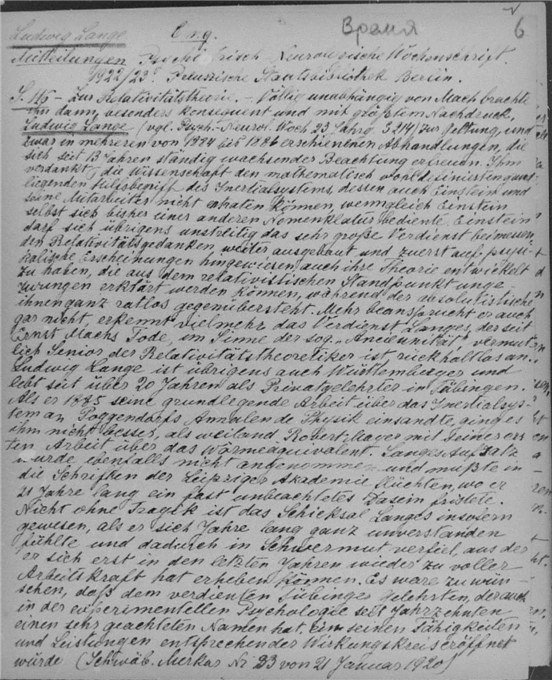 Ludwig Lange. Eng. Время 6
Mitteilungen Psychiatrisch Neurologische Wochenschrift.
1922/23. Preussische Staatsbibliothek Berlin.
S. 116 - Zur Relativitätstheorie. - Völlig unabhängig von Mach brachte
ihn dann, besonders konsequent und mit größtem Nachdruck,
Ludwig Lange (vgl. Psych.-Neurol. Woch 23 Jahrg. S 214) zur Geltung, und
zwar in mehreren von 1884 bis 1886 erschienenen Abhandlungen, die
sich seit 13 Jahren ständig wachsender Beachtung erfreuen. Ihm
verdankt die Wissenschaft den mathematisch wohldefinierten
liegenden Hilfsbegriff des Inertialsystems, dessen auch Einstein und
seine Mitarbeiter nicht entraten können, wenngleich Einstein
selbst sich bisher einer anderen Nomenklatur bediente. Einstein
darf sich übrigens unstreitig das sehr große Verdienst beimessen,
den Relativitätsgedanken weiter ausgebaut und zuerst auf physi-
kalische Erscheinungen hingewiesen, auch ihre Theorie entwickelt
zu haben, die aus dem relativistischen Standpunkt unge
zwungen erklärt werden können, während der absolutistische
ihnen ganz ratlos gegenübersteht. Mehr beansprucht er auch
gar nicht, erkennt vielmehr das Verdienst Langes, der seit
Ernst Machs Tode, im Sinne der sog. „Anciennität" vermut-
lich Senior der Relativitätstheoretiker ist rückhaltlos an.
Ludwig Lange ist übrigens auch Württemberger und
lebt seit über 20 Jahren als Privatgelehrter in Tübingen.
Als er 1885 seine grundlegende Arbeit über das Inertialsys-
tem an Poggendorfs Annalen de Physik einsandte, ging es
ihm nicht besser, als weiland Robert Mayer mit seiner ers
ten Arbeit über das Wärmeäquivalent. Langes Aufsatz
wurde ebenfalls nicht angenommen und mußte in
die Schriften der Leipziger Akademie flüchten, wo er
21 Jahre lang ein fast unbeachtetes Dasein fristete.
Nicht ohne Tragik ist das Schicksal Langes insofern
gewesen, als er sich Jahre lang ganz unverstanden
fühlte und dadurch in Schwermut verfiel, aus der
er sich erst in den letzten Jahren wieder zu voller
Arbeitskraft hat erheben können. Es wäre zu wün-
schen, daß dem verdienten Tübinger Gelehrten, der auch
in der experimentellen Psychologie seit Jahrzehnten
einen sehr geachteten Namen hat. Ein seinen Fähigkeiten
und Leistungen entsprechender Wirkungskreis eröffnet
würde (Schwäb. Merkur Nr 23 von 21 Januar 1920)